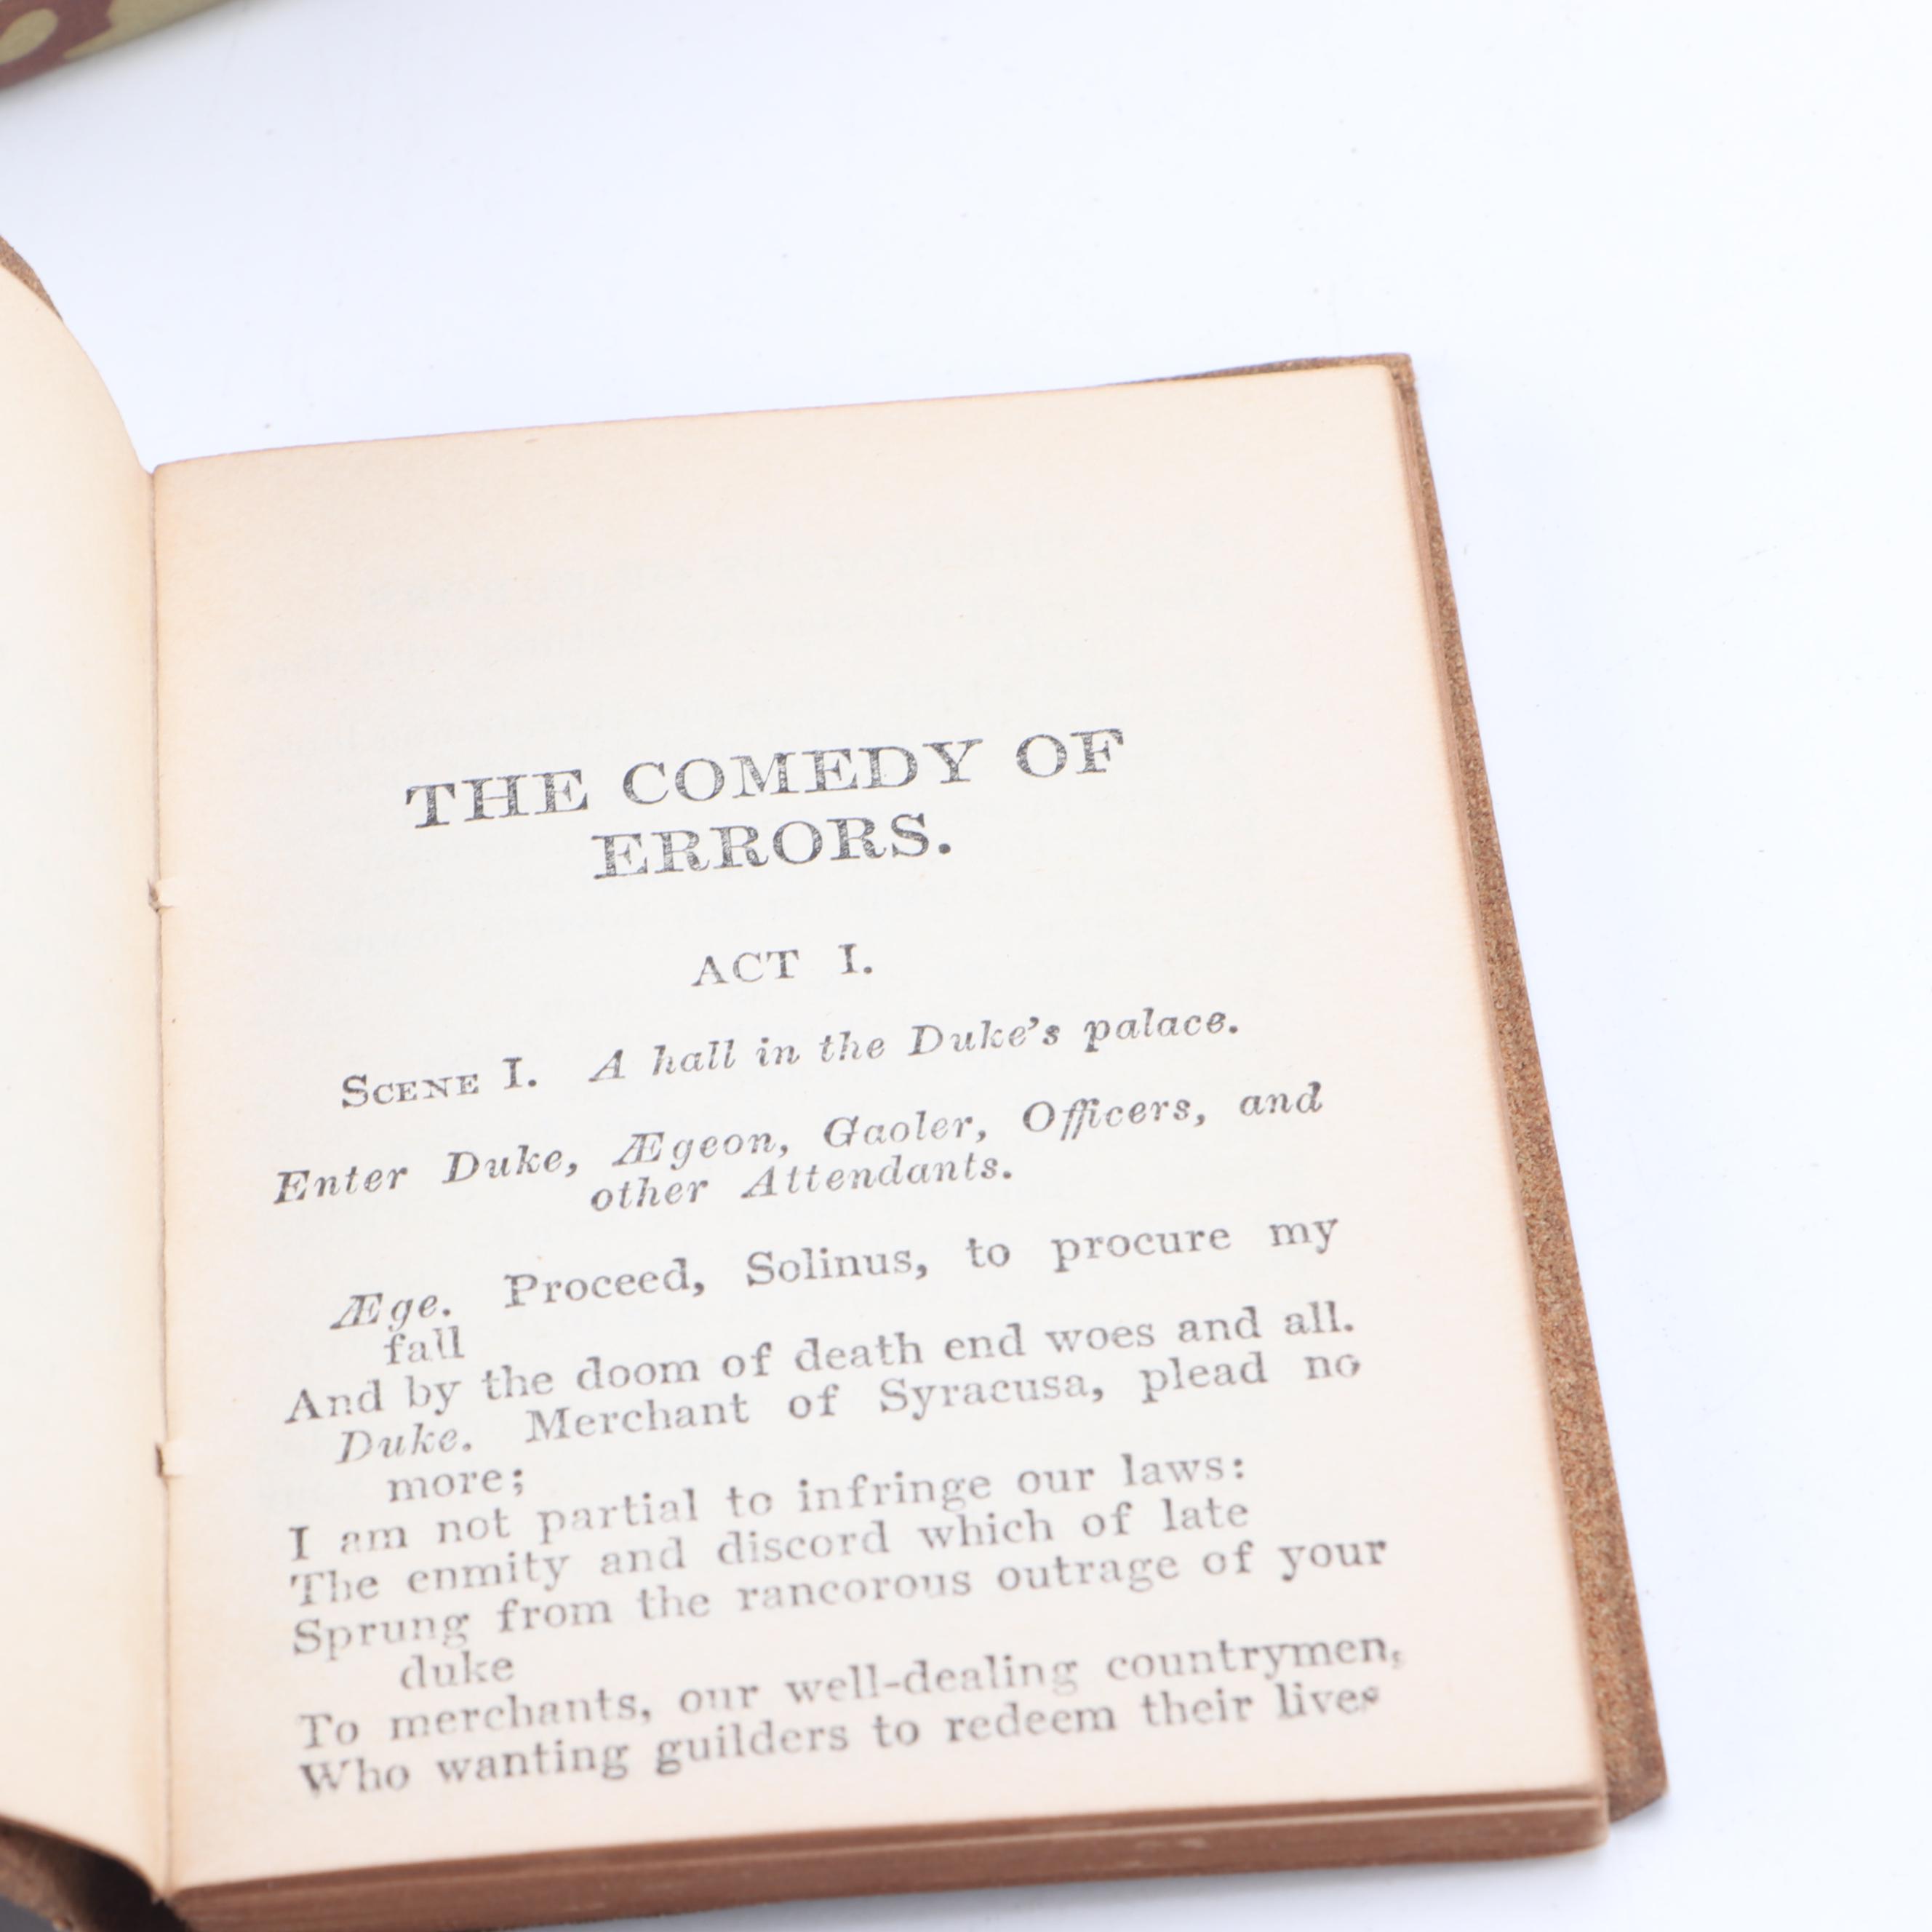 THE COMEDY OF
ERRORS.
ACT I.
SCENE I. A hall in the Duke's palace.
Enter Duke, Ægeon, Gaoler, Officers, and
other Attendants.
Æge. Proceed, Solinus, to procure my
fall
And by the doom of death end woes and all.
Duke. Merchant of Syracusa, plead no
more;
I am not partial to infringe our laws:
The enmity and discord which of late
Sprung from the rancorous outrage of your
duke
To merchants, our well-dealing countrymen,
Who wanting guilders to redeem their lives